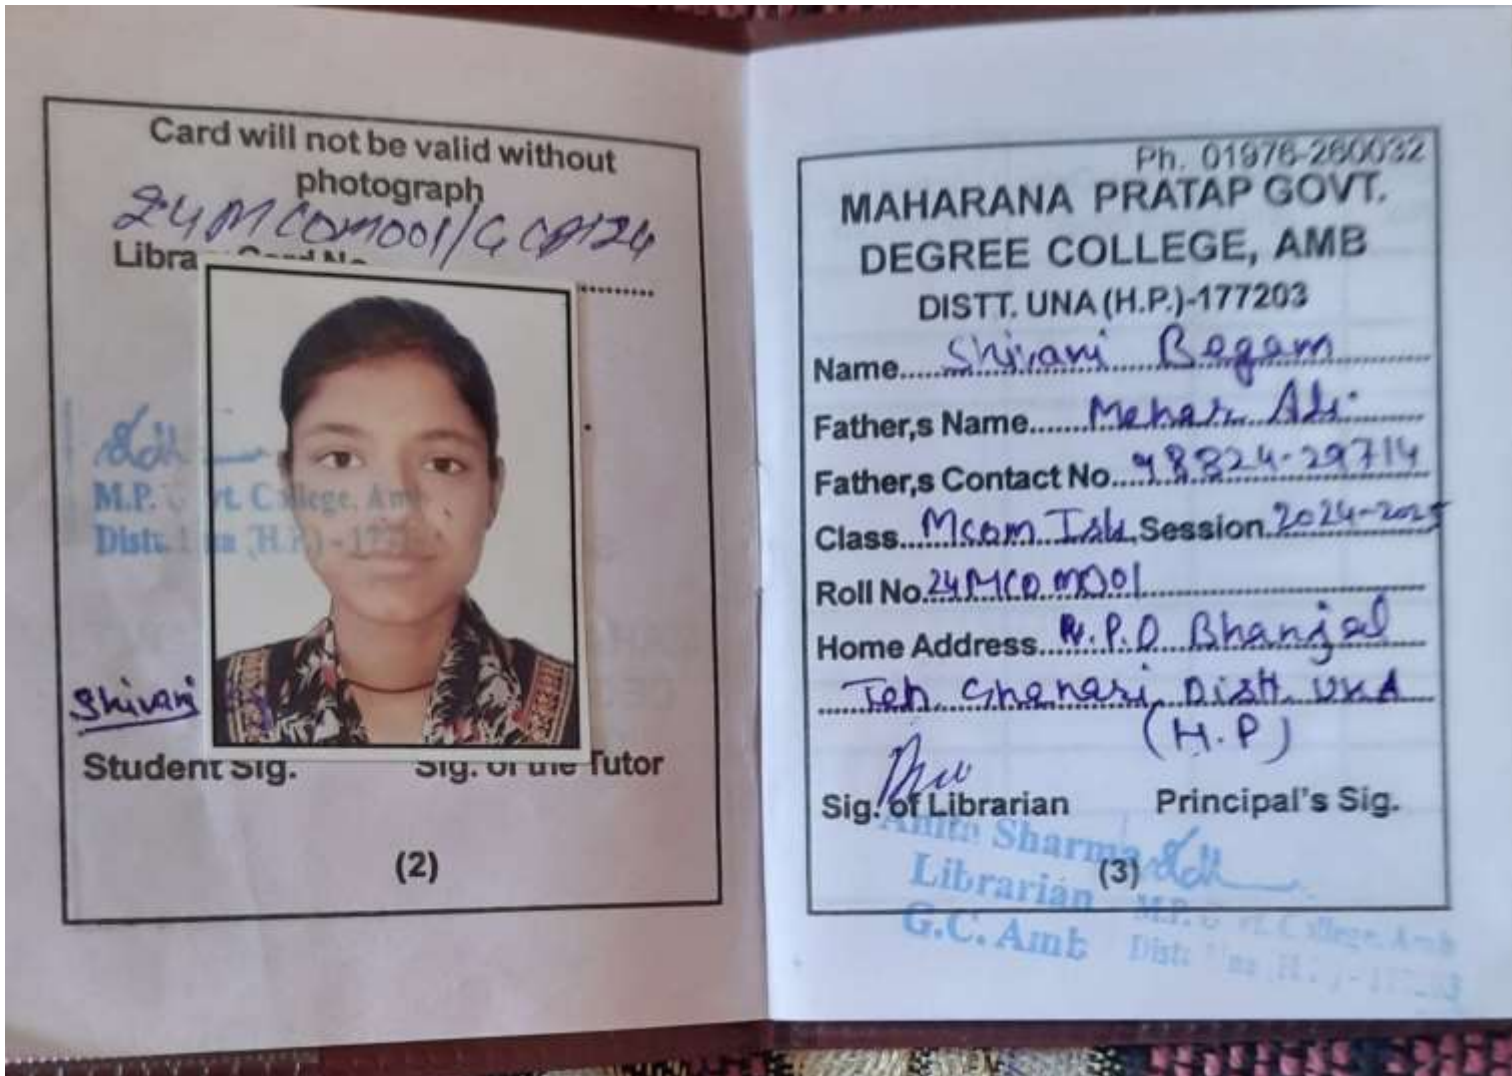 Card will not be valid without
photograph
24MCOM001/GCA/24
Student Sig.
Sig. of the Tutor
Shivani
M.P. Govt. College, Amb
Distt. Una (H.P.) - 177203
(2)
Ph. 01976-260032
MAHARANA PRATAP GOVT.
DEGREE COLLEGE, AMB
DISTT. UNA (H.P.)-177203
Name Shivani Begam
Father,s Name Mehar Ali
Father,s Contact No. 98824-29714
Class Mcom Ist Session 2024-2025
Roll No. 24MCOM001
Home Address V.P.O Bhanjal
Teh Ghanari Distt. UNA
(H.P)
Sig. of Librarian Principal's Sig.
Amita Sharma
Librarian
G.C. Amb
(3)
M.P. Govt. College, Amb
Distt. Una (H.P.) - 177203